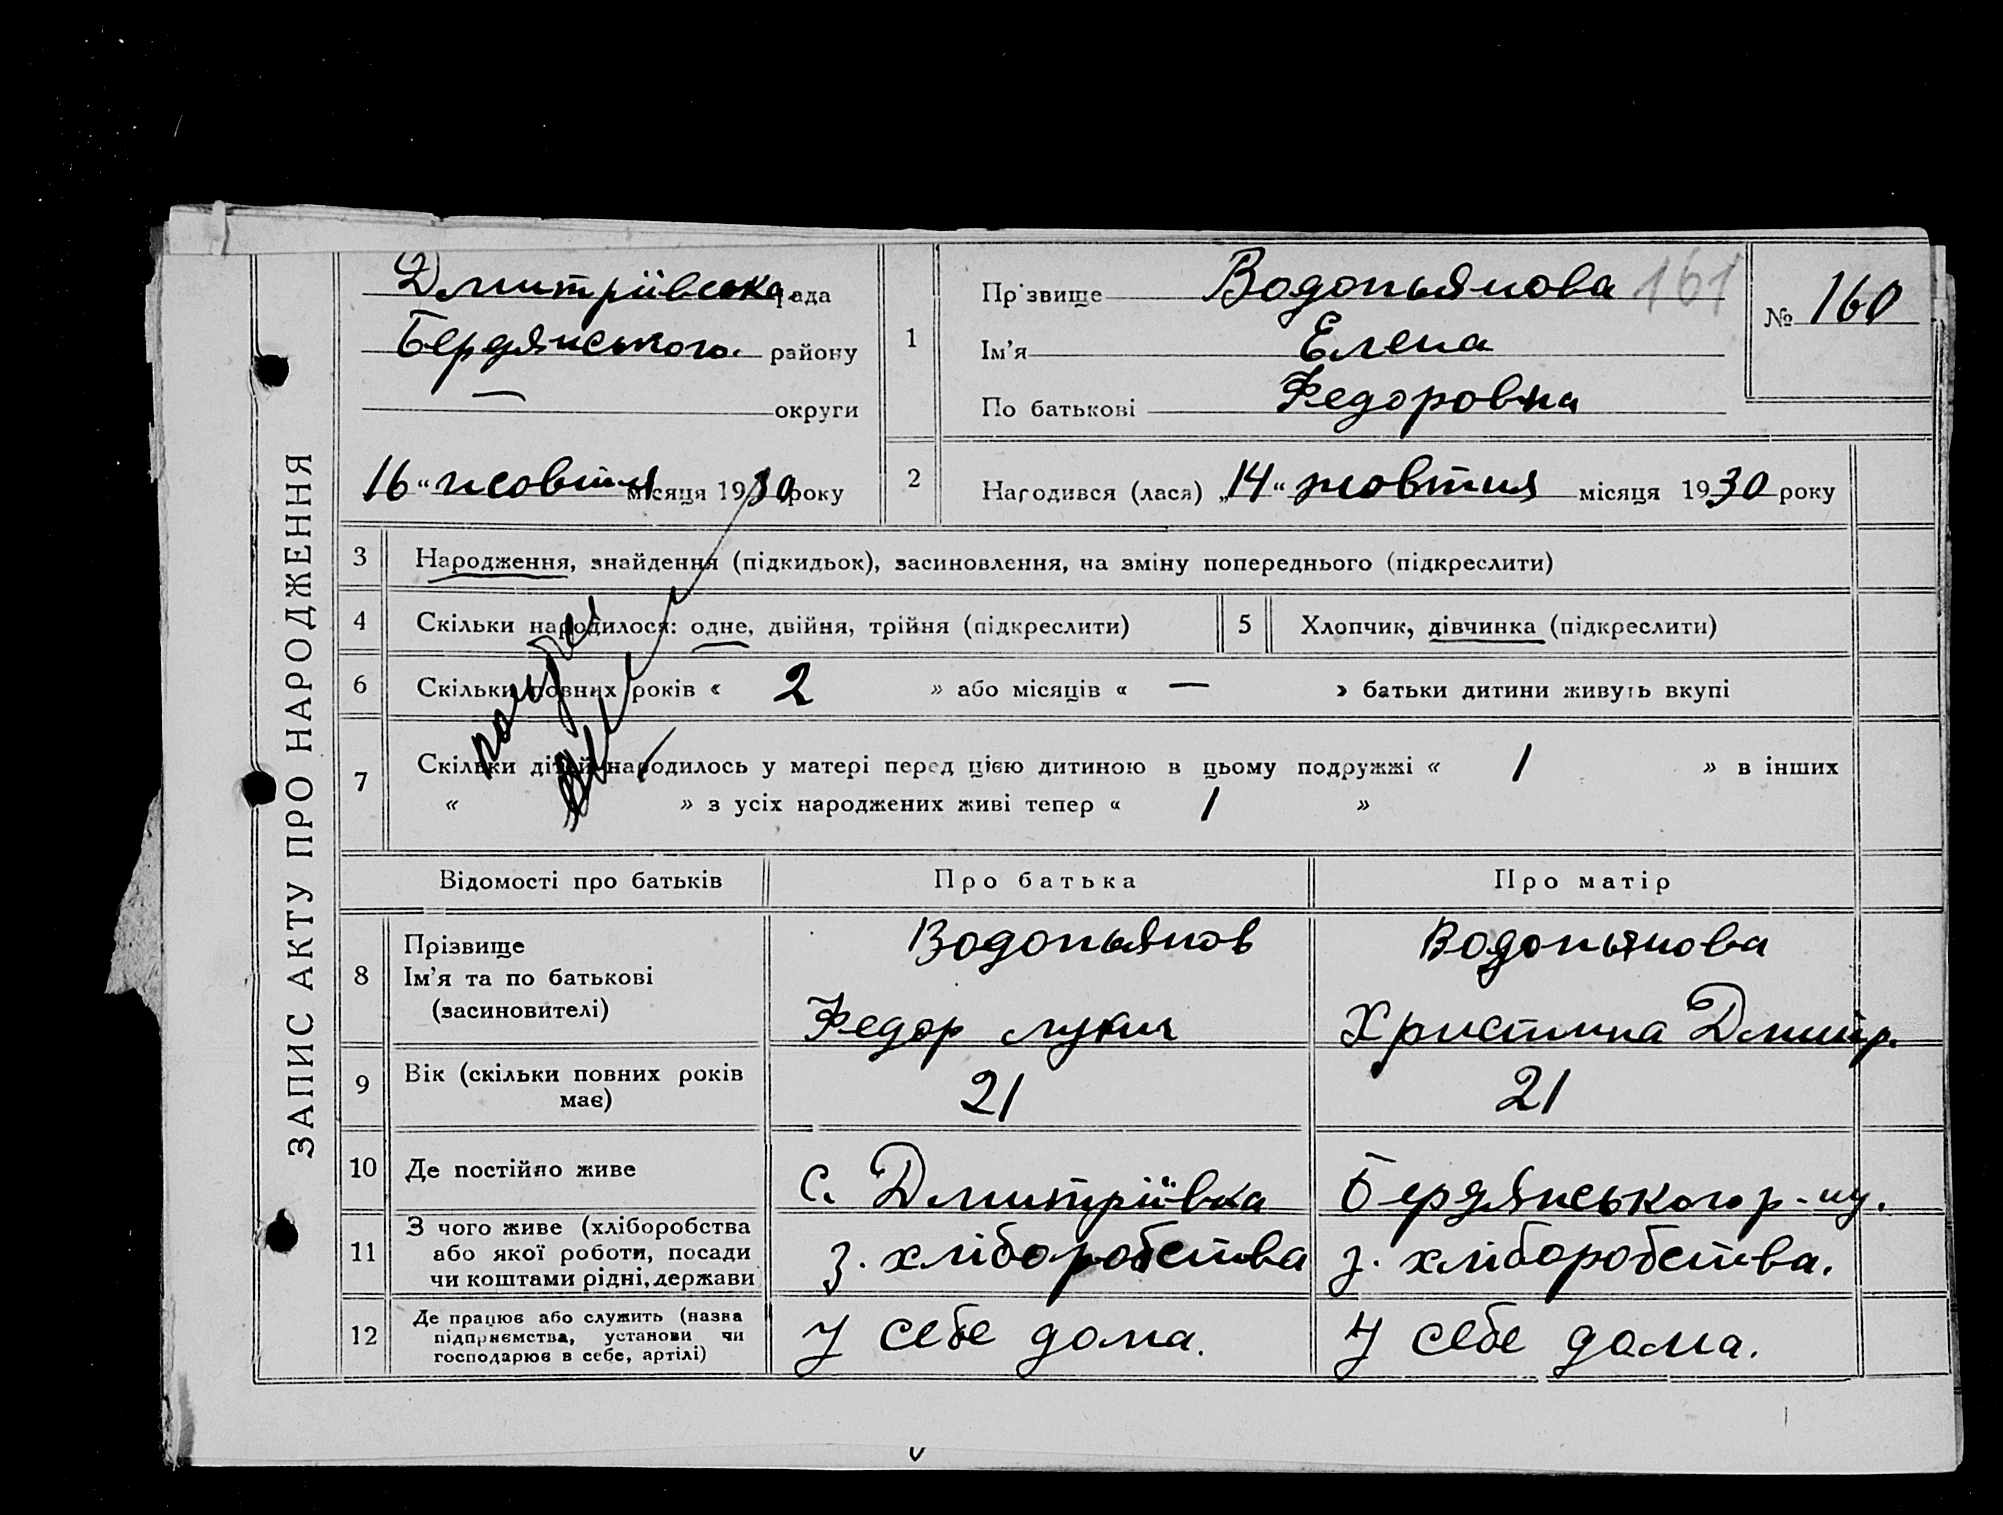 ЗАПИС АКТУ ПРО НАРОДЖЕННЯ
Дмитріївська рада
Бердянського району
— округи
16 " жовтня місяця 1930 року
1
Прізвище Водопьянова 161
Ім'я Елена
По батькові Федоровна
№ 160
2 Народився (лася) „14" жовтня місяця 1930 року
3 Народження, знайдення (підкидьок), засиновлення, на зміну попереднього (підкреслити)
4 Скільки народилося: одне, двійня, трійня (підкреслити)
5 Хлопчик, дівчинка (підкреслити)
6 Скільки повних років « 2 » або місяців « — » батьки дитини живуть вкупі
7 Скільки дітей народилось у матері перед цією дитиною в цьому подружжі « 1 » в інших
« » з усіх народжених живі тепер « 1 »
Відомості про батьків Про батька Про матір
8 Прізвище
Ім'я та по батькові
(засиновителі)
Водопьянов
Федор Лукич
Водопьянова
Христина Дмитр.
9 Вік (скільки повних років
має)
21
21
10 Де постійно живе с. Дмитріївка Бердянського р-ну.
11 З чого живе (хліборобства
або якої роботи, посади
чи коштами рідні, держави
з. хліборобства
з. хліборобства.
12 Де працює або служить (назва
підприємства, установи чи
господарює в себе, артілі)
У себе дома.
У себе дома.